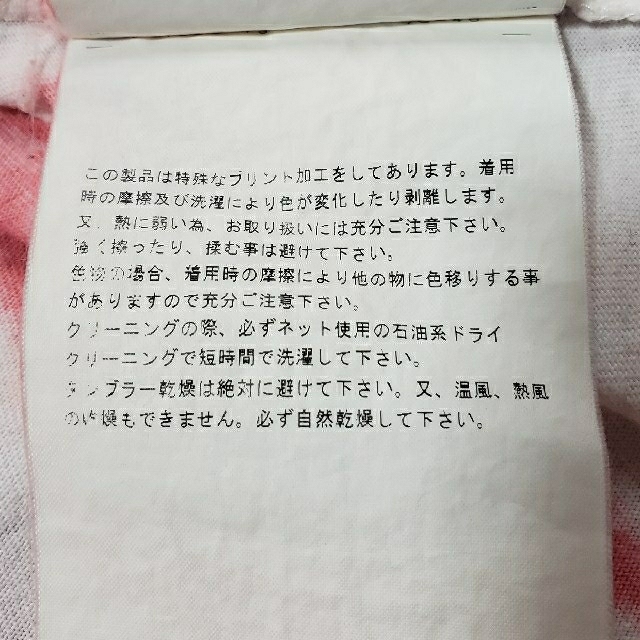 この製品は特殊なプリント加工をしてあります。着用
時の摩擦及び洗濯により色が変化したり剥離します。
又、熱に弱い為、お取り扱いには充分ご注意下さい。
強く擦ったり、揉む事は避けて下さい。
色物の場合、着用時の摩擦により他の物に色移りする事
がありますので充分ご注意下さい。
クリーニングの際、必ずネット使用の石油系ドライ
クリーニングで短時間で洗濯して下さい。
タンブラー乾燥は絶対に避けて下さい。又、温風、熱風
の乾燥もできません。必ず自然乾燥して下さい。